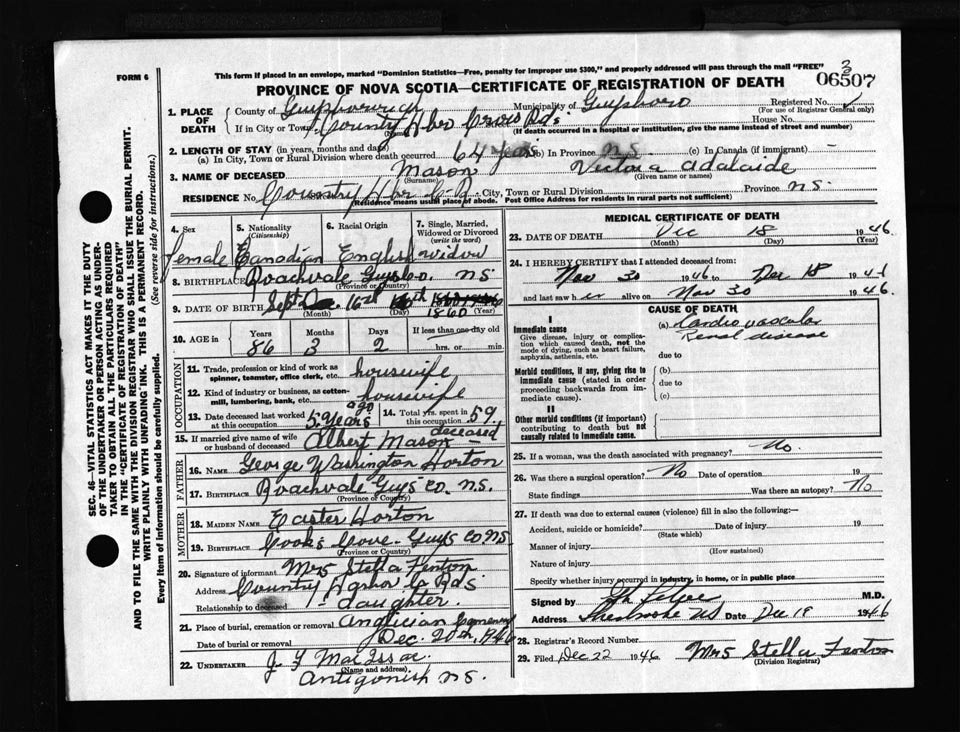 FORM 6
This form if placed in an envelope, marked "Dominion Statistics—Free, penalty for improper use $300," and properly addressed will pass through the mail "FREE"
PROVINCE OF NOVA SCOTIA—CERTIFICATE OF REGISTRATION OF DEATH
06507
3
1. PLACE OF DEATH
County of Municipality of Guysboro Registered No.
(For use of Registrar General only)
If in City or Town County Hbr Cross Rds House No.
(Name)
(If death occurred in a hospital or institution, give the name instead of street and number)
2. LENGTH OF STAY (in years, months and days)
(a) In City, Town or Rural Division where death occurred 64 years (b) In Province NS (c) In Canada (if immigrant) –
3. NAME OF DECEASED Mason Victoria Adalaide
(Surname) (Given name or names)
RESIDENCE No. Country Hbr City, Town or Rural Division Province N.S.
(Residence means usual place of abode. Post Office Address for residents in rural parts not sufficient)
4. Sex
Female
5. Nationality
(Citizenship)
Canadian
6. Racial Origin
English
7. Single, Married, Widowed or Divorced
(write the word)
widow
8. BIRTHPLACE Roachvale Guys Co. NS
(Province or Country)
9. DATE OF BIRTH Sept 16th 1860
(Month) (Day)
10. AGE in
Years Months Days If less than one day old
86 3 2 hrs. or min.
OCCUPATION
11. Trade, profession or kind of work as spinner, teamster, office clerk, etc. housewife
12. Kind of industry or business, as cotton-mill, lumbering, bank, etc. housewife
13. Date deceased last worked at this occupation 5 years ago
14. Total yrs. spent in this occupation 59
15. If married give name of wife or husband of deceased Albert Mason deceased
FATHER
16. NAME George Washington Horton
17. BIRTHPLACE Roachvale Guys Co. N.S.
(Province or Country)
MOTHER
18. MAIDEN NAME Easter Horton
19. BIRTHPLACE Cook's Cove Guys Co NS
(Province or Country)
20. Signature of informant Mrs Stella Fenton
Address Country Harbor Rds
Relationship to deceased daughter
21. Place of burial, cremation or removal Anglican
Date of burial or removal Dec. 20th, 1946
22. UNDERTAKER J. Y MacIssac
(Name and address)
Antigonish N.S.
MEDICAL CERTIFICATE OF DEATH
23. DATE OF DEATH Dec 18 1946
(Month) (Day) (Year)
24. I HEREBY CERTIFY that I attended deceased from:
Nov 30 1946 to Dec 18 194
and last saw her alive on Nov 30 1946.
CAUSE OF DEATH
I
Immediate cause
Give disease, injury or complication which caused death, not the mode of dying, such as heart failure, asphyxia, asthenia, etc.
(a) Cardio vascular
Renal disease
due to
Morbid conditions, if any, giving rise to immediate cause (stated in order proceeding backwards from immediate cause).
(b)
due to
(c)
II
Other morbid conditions (if important) contributing to death but not causally related to immediate cause.
25. If a woman, was the death associated with pregnancy? No.
26. Was there a surgical operation? No Date of operation 19
State findings Was there an autopsy? No
27. If death was due to external causes (violence) fill in also the following:—
Accident, suicide or homicide? Date of injury 19
(State which)
Manner of injury
(How sustained)
Nature of injury
Specify whether injury occurred in industry, in home, or in public place
Signed by M.D.
Address Sherbrooke NS Date Dec 19 1946
28. Registrar's Record Number
29. Filed Dec 22 1946 Mrs Stella Fenton
(Division Registrar)
SEC. 46—VITAL STATISTICS ACT MAKES IT THE DUTY
OF THE UNDERTAKER OR PERSON ACTING AS UNDER-
TAKER TO OBTAIN ALL THE PARTICULARS REQUIRED
IN THE "CERTIFICATE OF REGISTRATION OF DEATH"
AND TO FILE THE SAME WITH THE DIVISION REGISTRAR WHO SHALL ISSUE THE BURIAL PERMIT.
WRITE PLAINLY WITH UNFADING INK. THIS IS A PERMANENT RECORD.
Every item of information should be carefully supplied. (See reverse side for instructions.)